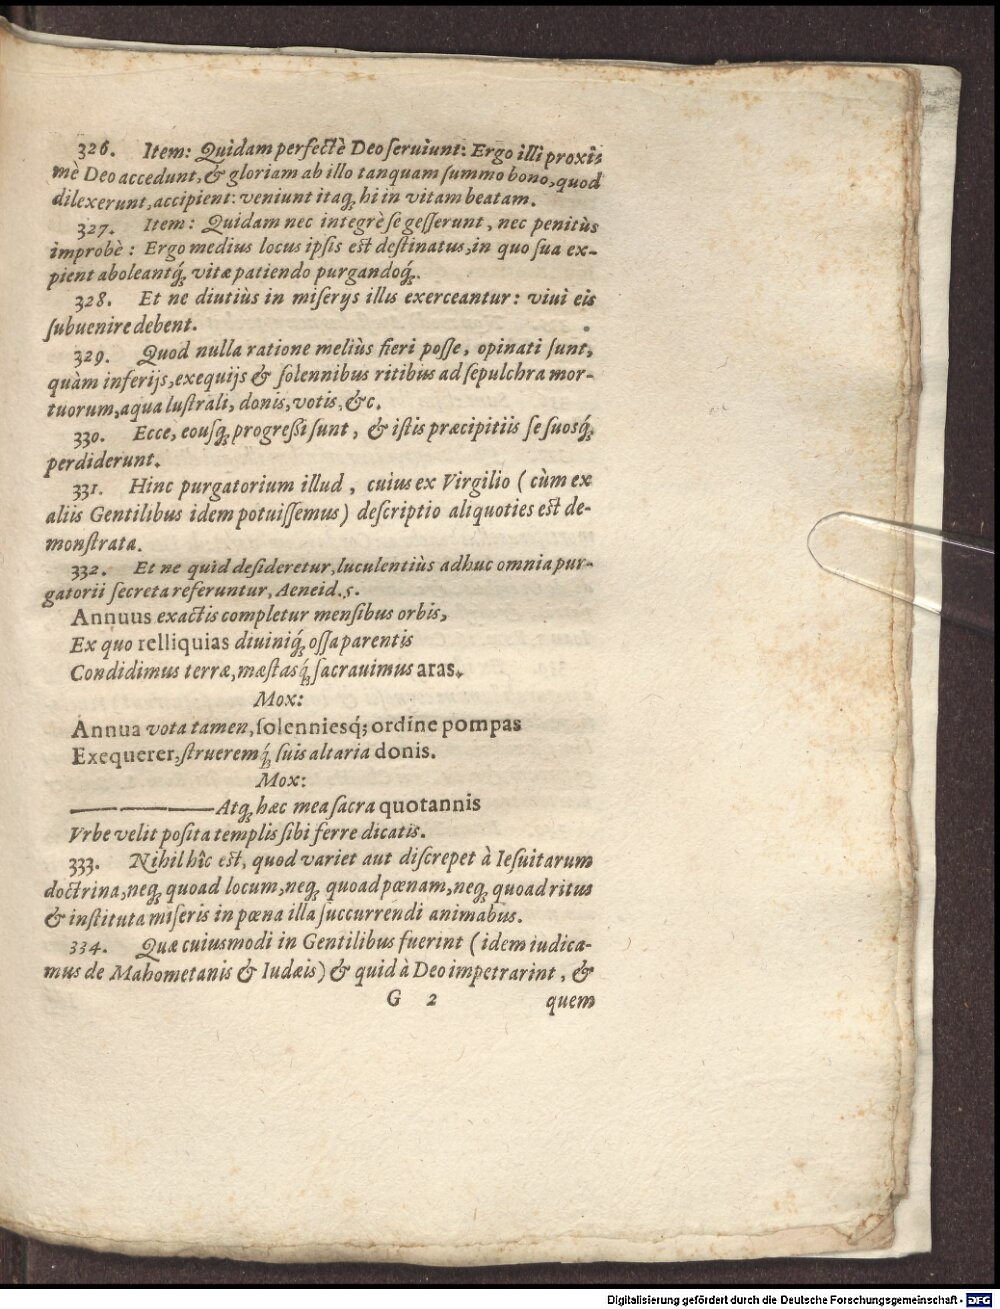 326. Item: Quidam perfectè Deo ſeruiunt: Ergo illi proxi-
mè Deo accedunt, & gloriam ab illo tanquam ſummo bono, quod
dilexerunt, accipient: veniunt itaq́; hi in vitam beatam.
327. Item: Quidam nec integrè ſe geſſerunt, nec penitùs
improbè: Ergo medius locus ipſis eſt deſtinatus, in quo ſua ex-
pient aboleantq́; vitæ patiendo purgandoq́;.
328. Et ne diutiùs in miſerys illis exerceantur: viui eis
ſubuenire debent.
329. Quod nulla ratione meliùs fieri poſſe, opinati ſunt,
quàm inferijs, exequijs & ſolennibus ritibus ad ſepulchra mor-
tuorum, aqua luſtrali, donis, votis, &c.
330. Ecce, eousq; progreßi ſunt, & iſtis præcipitiis ſe ſuosq́;
perdiderunt.
331. Hinc purgatorium illud, cuius ex Virgilio (cùm ex
aliis Gentilibus idem potuiſſemus) deſcriptio aliquoties eſt de-
monſtrata.
332. Et ne quid deſideretur, luculentiùs adhuc omnia pur-
gatorii ſecreta referuntur, Aeneid. 5.
Annuus exactis completur menſibus orbis,
Ex quo relliquias diuiniq́; oſſa parentis
Condidimus terræ, mæſtasq́; ſacrauimus aras.
Mox:
Annua vota tamen, ſolenniesq́; ordine pompas
Exequerer, ſtrueremq́; ſuis altaria donis.
Mox:
———— Atq; hæc mea ſacra quotannis
Vrbe velit poſita templis ſibi ferre dicatis.
333. Nihil hîc eſt, quod variet aut diſcrepet à Ieſuitarum
doctrina, neq; quoad locum, neq; quoad pœnam, neq; quoad ritus
& inſtituta miſeris in pœna illa ſuccurrendi animabus.
334. Quæ cuiusmodi in Gentilibus fuerint (idem iudica-
mus de Mahometanis & Iudæis) & quid à Deo impetrarint, &
G 2 quem
Digitalisierung gefördert durch die Deutsche Forschungsgemeinschaft - DFG